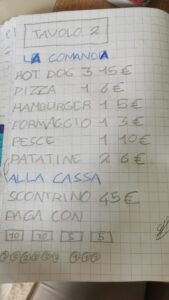 TAVOLO 2
LA COMANDA
HOT DOG 3 15€
PIZZA 1 6€
HAMBURGER 1 5€
FORMAGGIO 1 3€
PESCE 1 10€
PATATINE 2 6€
ALLA CASSA
SCONTRINO 45€
PAGA CON
5 5